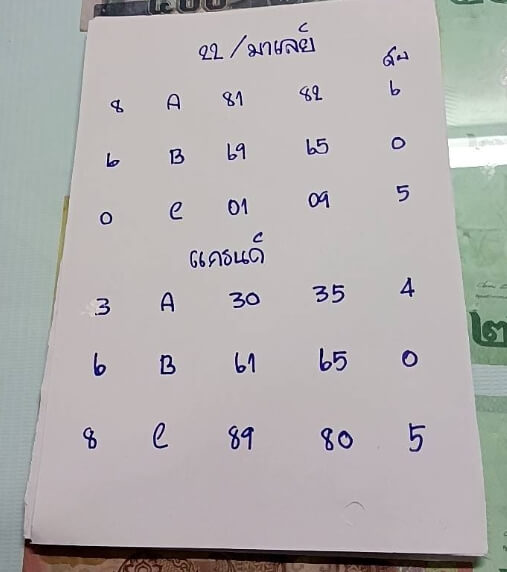 22/มาเลย์
8 A 81 82 6
6 B 69 65 0
0 C 01 09 5
แกรนด์
3 A 30 35 4
6 B 61 65 0
8 C 89 80 5